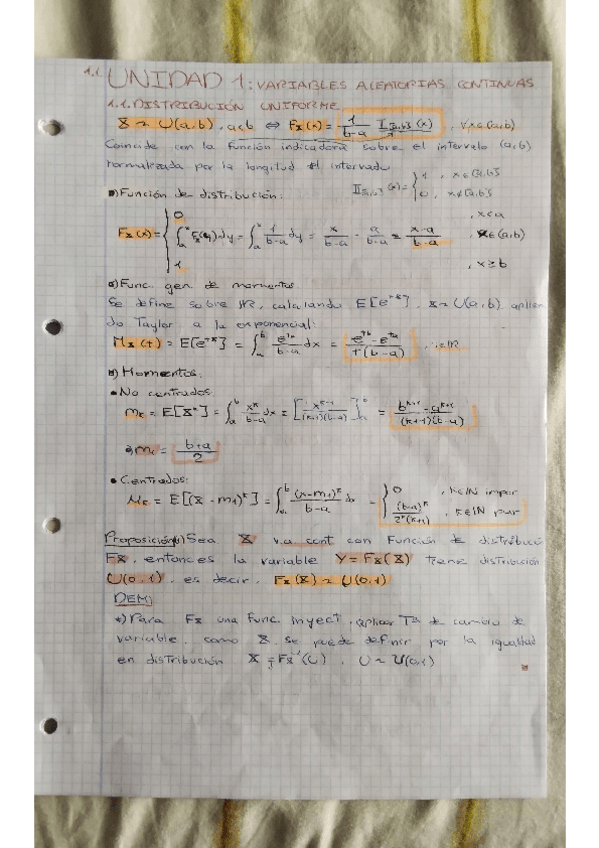 1.1. UNIDAD 1: VARIABLES ALEATORIAS CONTINUAS
1.1. DISTRIBUCIÓN UNIFORME
X ~ U(a,b), a<b ⇔ Fx(x) = 1/(b-a) 𝕀[a,b](x), ∀x∈(a,b)
Coincide con la función indicadora sobre el intervalo (a,b)
normalizada por la longitud del intervalo 𝕀[a,b](x) = { 1, x∈[a,b]
0, x∉[a,b]
Función de distribución:
0 , x<a
Fx(x) = { ∫ₐˣ fx(y)dy = ∫ₐˣ 1/(b-a) dy = x/(b-a) - a/(b-a) = (x-a)/(b-a) , x∈(a,b)
1 , x≥b
Func. gen. de momentos
Se define sobre ℝ, calculando E[e^tx], X~U(a,b), aplican
do Taylor a la exponencial:
Mx(t) = E[e^tx] = ∫ₐᵇ e^tx/(b-a) dx = (e^tb - e^ta)/(t(b-a)) , t∈ℝ
Momentos:
• No centrados:
mk = E[X^k] = ∫ₐᵇ x^k/(b-a) dx = [x^(k+1)/((k+1)(b-a))]ₐᵇ = (b^(k+1) - a^(k+1))/((k+1)(b-a))
m₁ = (b+a)/2
• Centrados:
μk = E[(X - m₁)^k] = ∫ₐᵇ (x-m₁)^k/(b-a) dx = { 0 , k∈ℕ impar
(b-a)^k/(2^k(k+1)) , k∈ℕ par
Proposición(1) Sea X v.a. cont con Función de distribució
Fx, entonces la variable Y = Fx(X) tiene distribución
U(0,1), es decir, Fx(X) ~ U(0,1)
DEM:
*) Para Fx una func. inyect, aplicar Tª de cambio de
variable, como X se puede definir por la igualdad
en distribución X = Fx⁻¹(U), U ~ U(0,1)